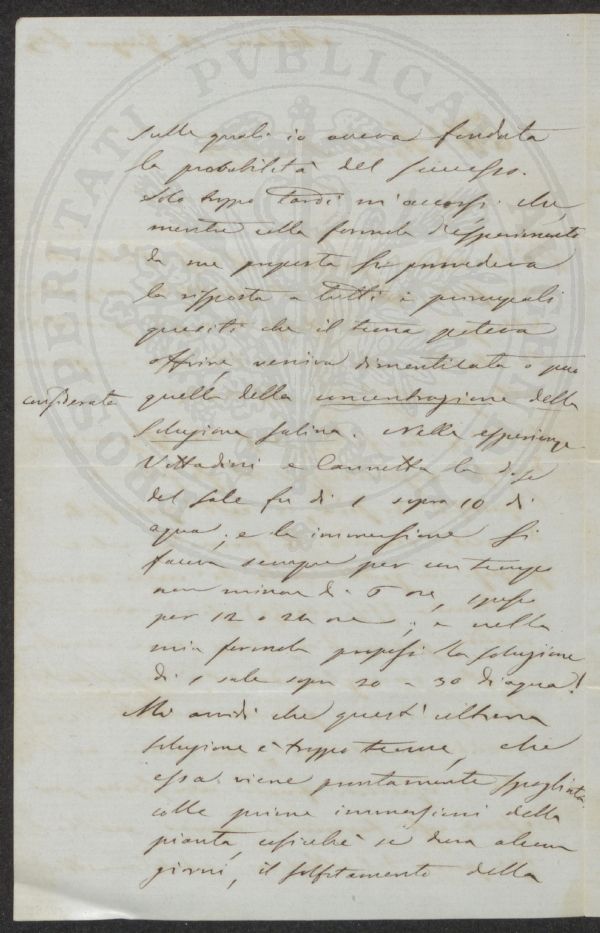 PROSPERITATI PVBLICAE AVGENDAE
sulle quali io aveva fondata
la probabilità del successo.
Solo troppo tardi m'accorsi che,
mentre colla formola d'esperimento
da me proposta si provvedeva
la risposta a tutti i principali
quesiti che il tema poteva
offrire, veniva dimenticata o poco
considerata
quella della concentrazione della
soluzione salina. Nelle esperienze
Vittadini e Cannetta la dose
del sale fu di 1 sopra 10 di
acqua; e la immersione si
faceva sempre per un tempo
non minore di 6 ore, spesso
per 12 o 24 ore; e nella
mia formola proposi la soluzione
di 1 sale sopra 20 a 30 di acqua!
Mi avvidi che quest'ultima
soluzione è troppo tenue, che
essa viene prontamente spogliata
colle prime immersioni della
pianta, cosichè se dura alcuni
giorni, il solfitamento della